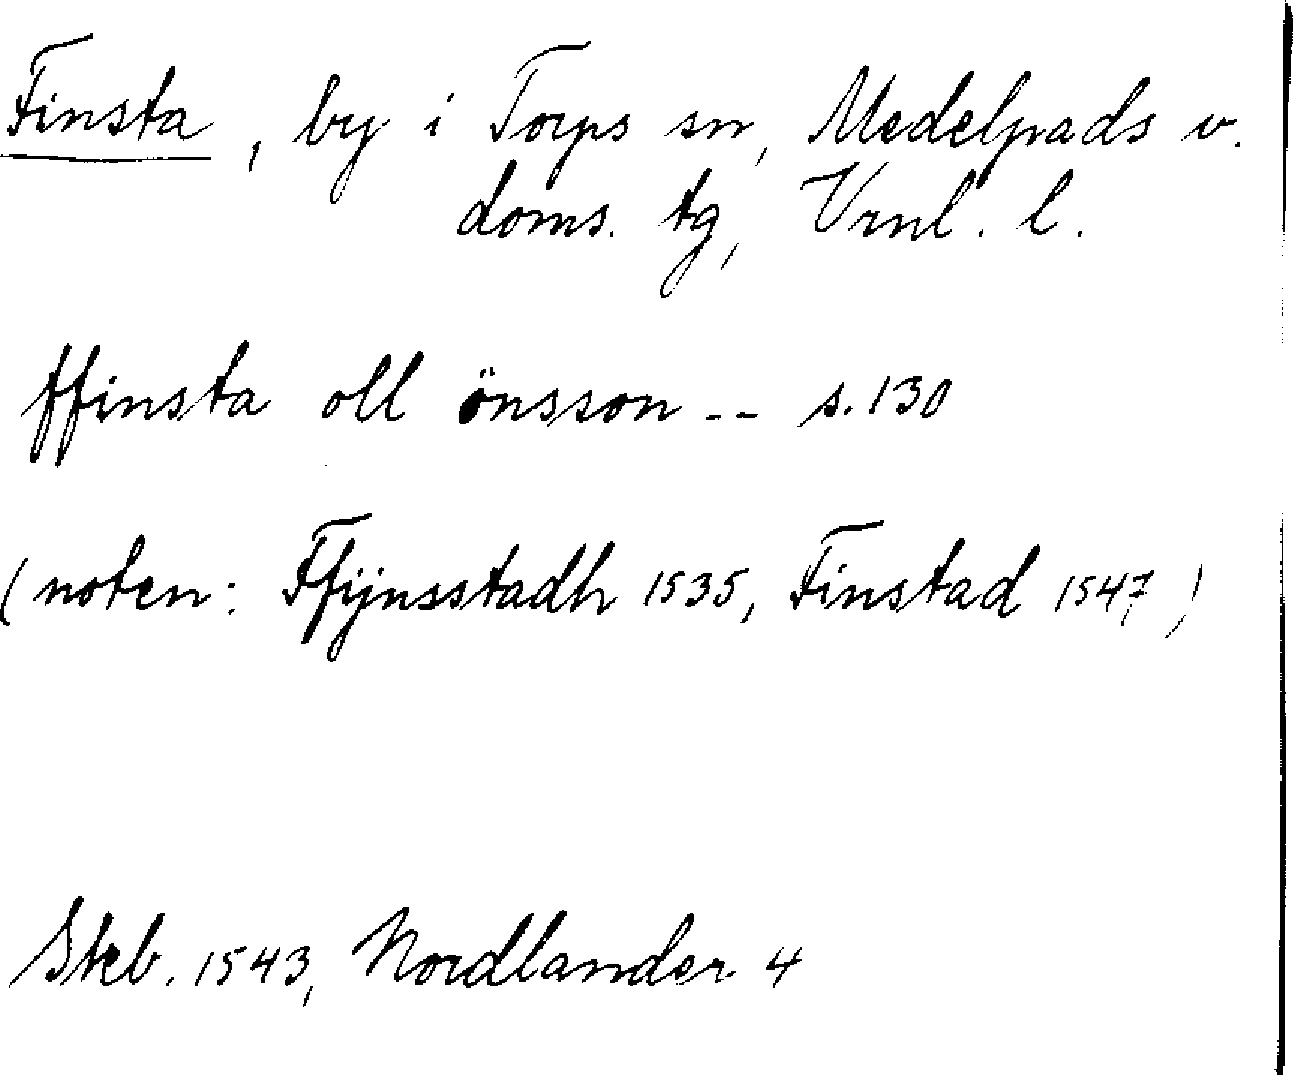 Finsta, by i Torps sn, Medelpads v.
doms. tg, Vrnl. l.
ffinsta oll önsson -- s. 130
(noten: Ffijnsstadh 1535, Finstad 1547,)
Skb. 1543, Nordlander 4